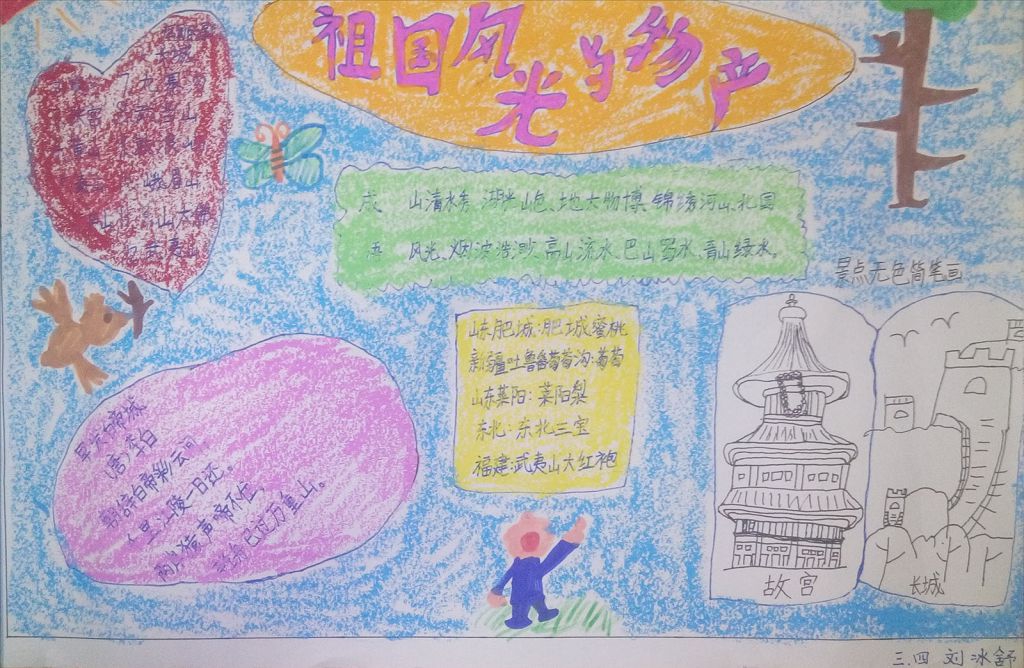 祖国风光与物产
成 山清水秀、湖光山色、地大物博、锦绣河山、北国
语 风光、烟波浩渺、高山流水、巴山蜀水、青山绿水。
景点无色简笔画
峨眉山
武夷山
山东肥城:肥城蜜桃
新疆吐鲁番葡萄沟:葡萄
山东莱阳:莱阳梨
东北:东北三宝
福建:武夷山大红袍
早发白帝城
唐 李白
朝辞白帝彩云间
千里江陵一日还。
两岸猿声啼不住
轻舟已过万重山。
故宫
长城
三.四 刘冰舒